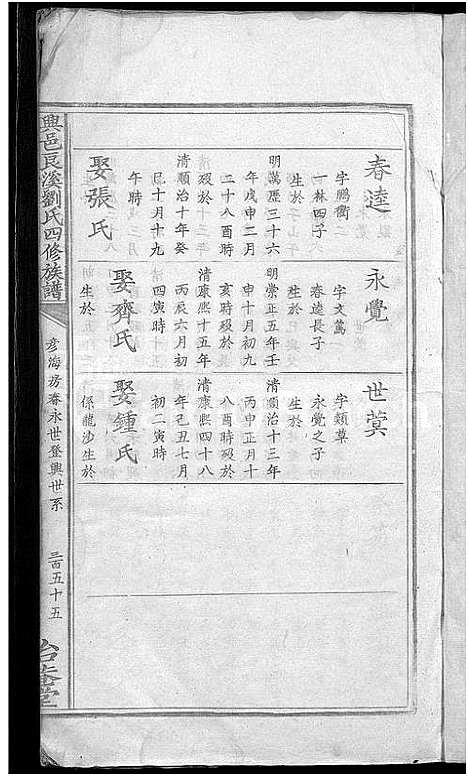 春逵
字鵬衢
一林四子
生於
明萬歷三十六
年戊申二月
二十八酉時
清順治十年癸
巳十月十九
午時
娶張氏
永覺
字文蔦
春逵長子
生於
明崇正五年壬
申十月初九
亥時殁於
清康熙十五年
丙辰六月初
四寅時
娶齊氏
生於
世蓂
字類草
永覺之子
生於
清順治十三年
丙申正月十
八酉時殁於
清康熙四十八
年己丑七月
初二寅時
娶鍾氏
係龍沙生於
興邑良溪劉氏四修族譜
彦海房春永世登興世系
三百五十五